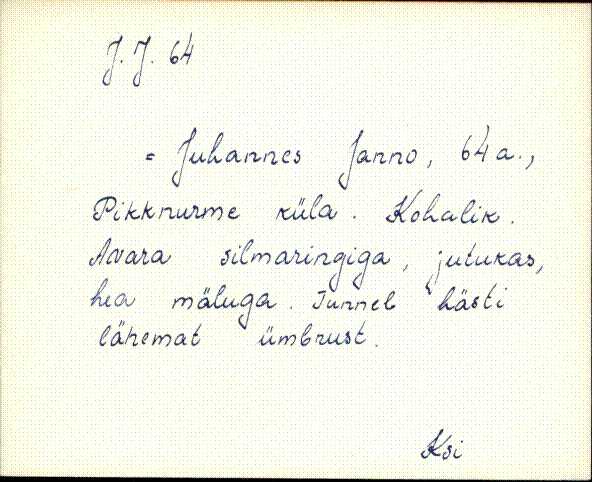 J. J. 64
= Juhannes Janno, 64 a.,
Pikknurme küla. Kohalik.
Avara silmaringiga, jutukas,
hea mäluga. Tunneb hästi
lähemat ümbrust.
Ksi